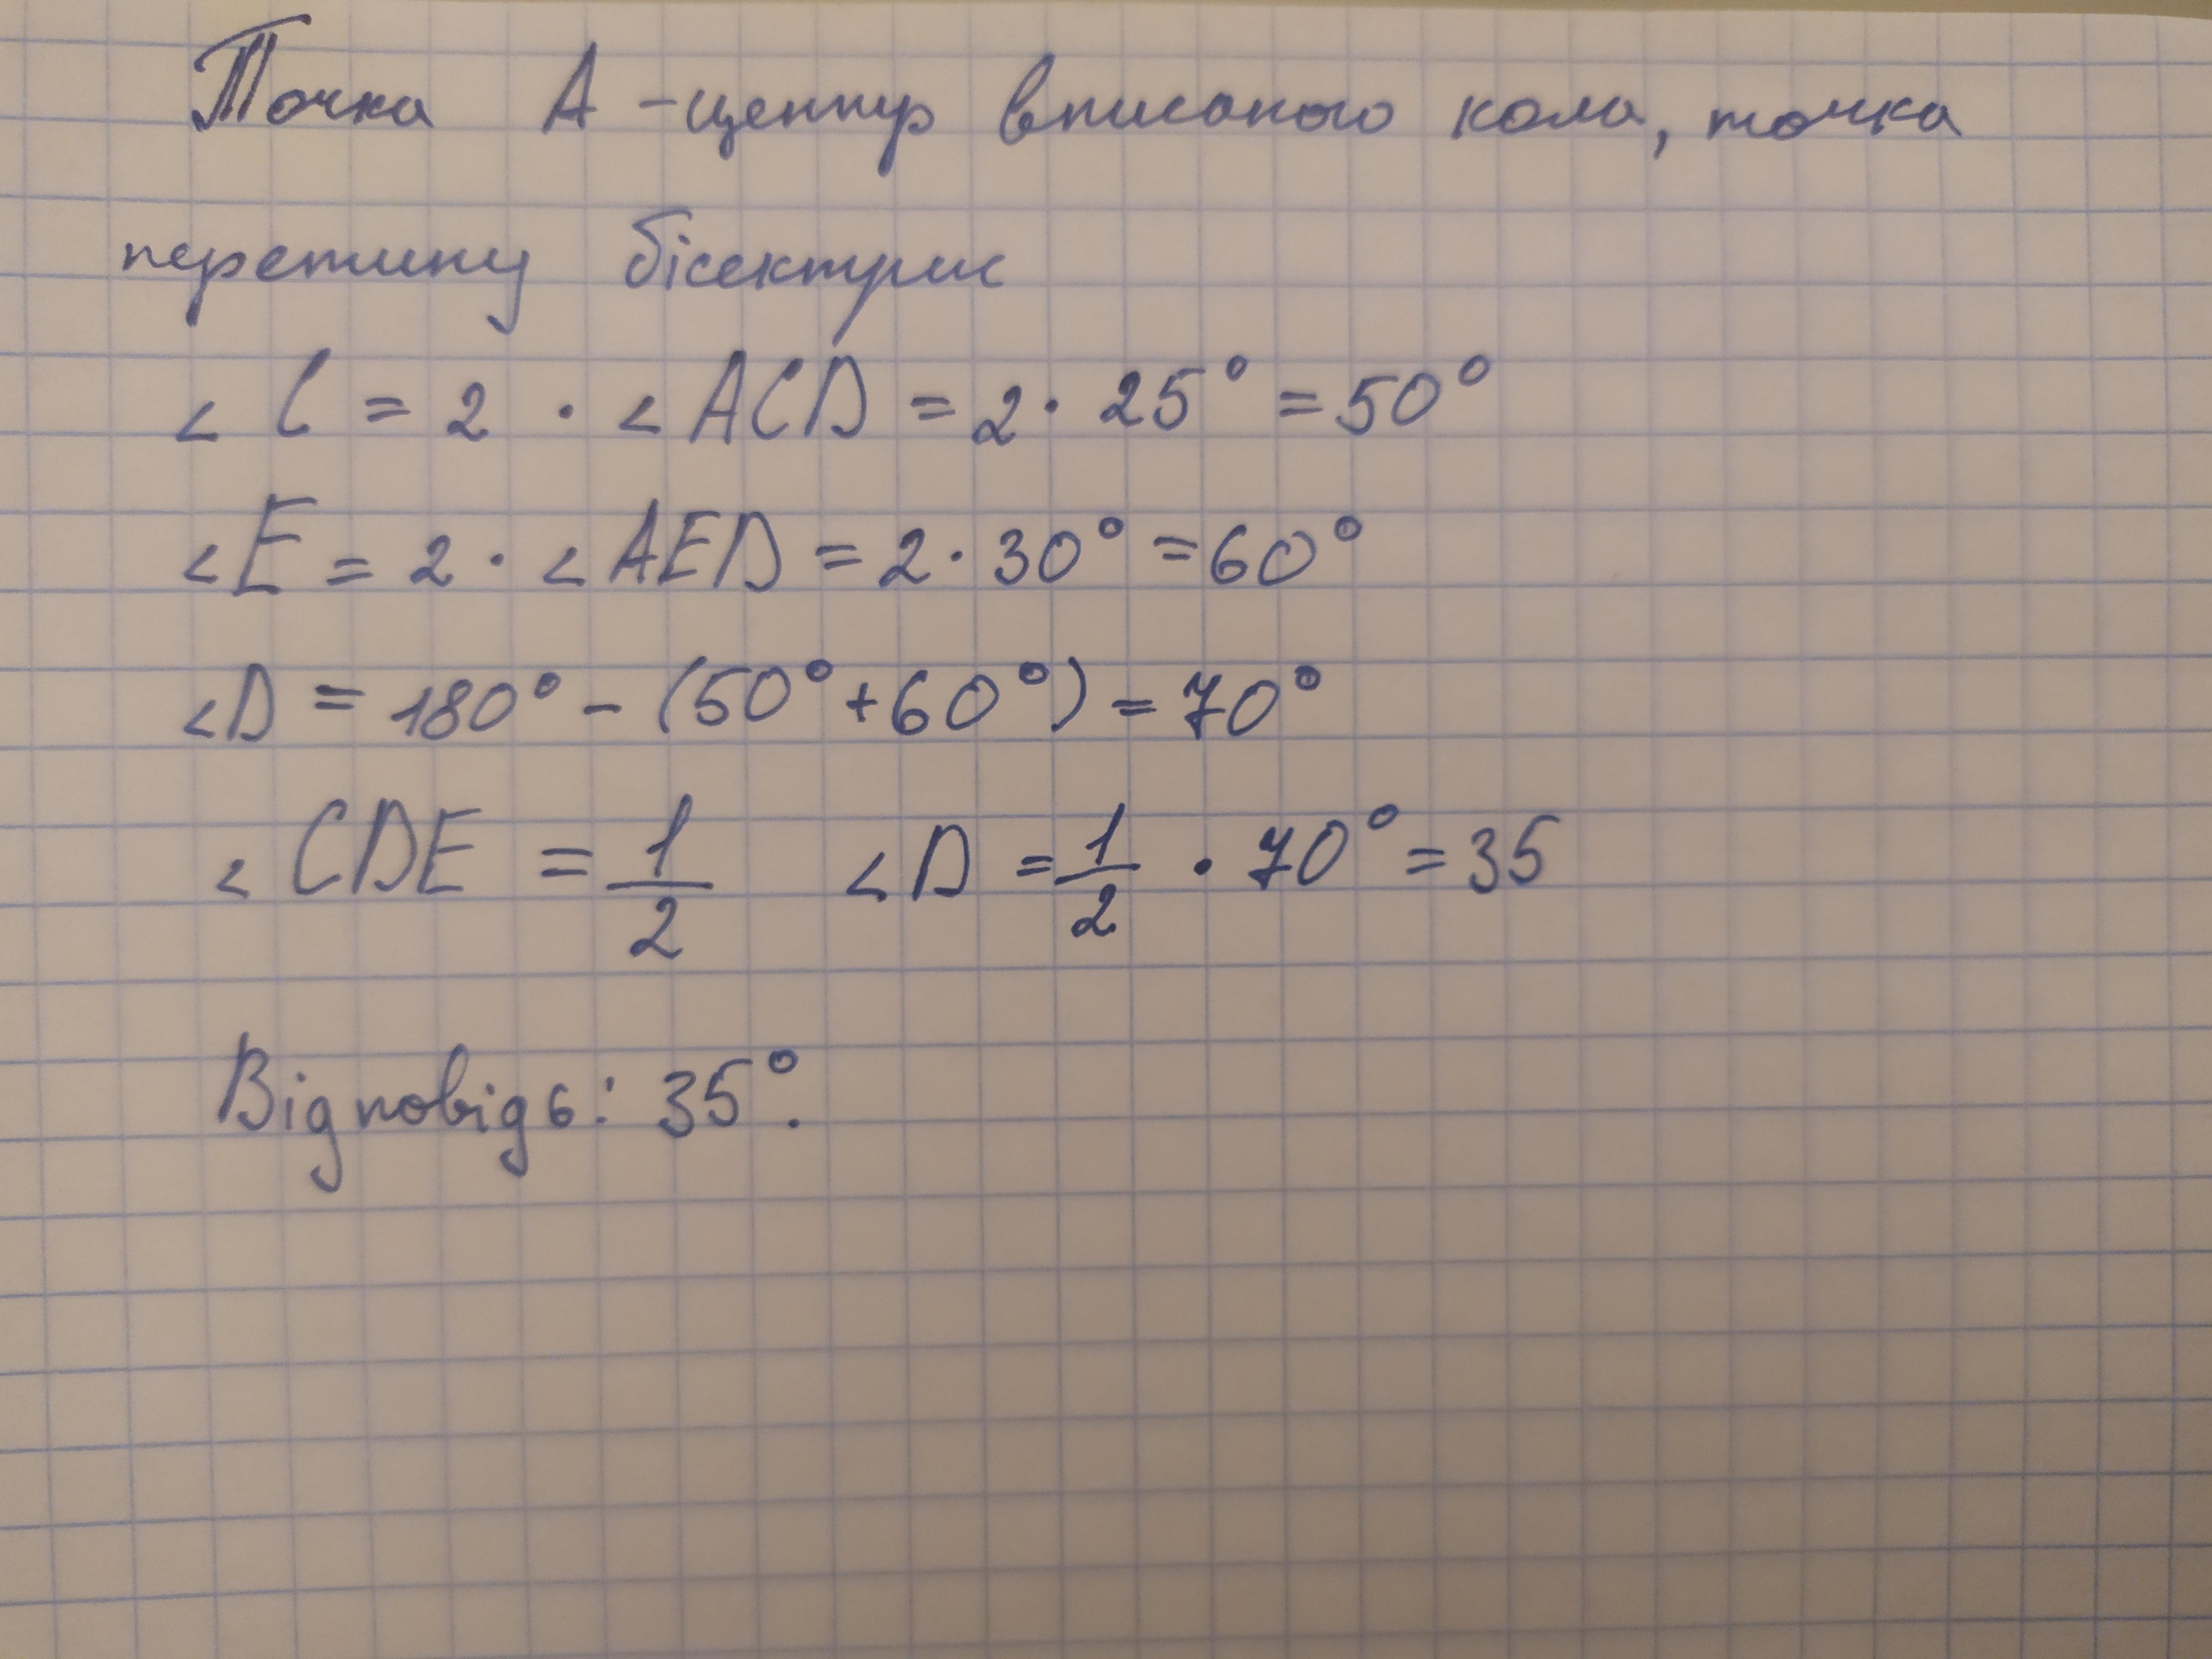 Точка А - центр вписаного кола, точка
перетину бісектрис
∠C = 2 · ∠ACD = 2 · 25° = 50°
∠E = 2 · ∠AED = 2 · 30° = 60°
∠D = 180° - (50° + 60°) = 70°
∠CDE = 1/2 ∠D = 1/2 · 70° = 35
Відповідь: 35°.